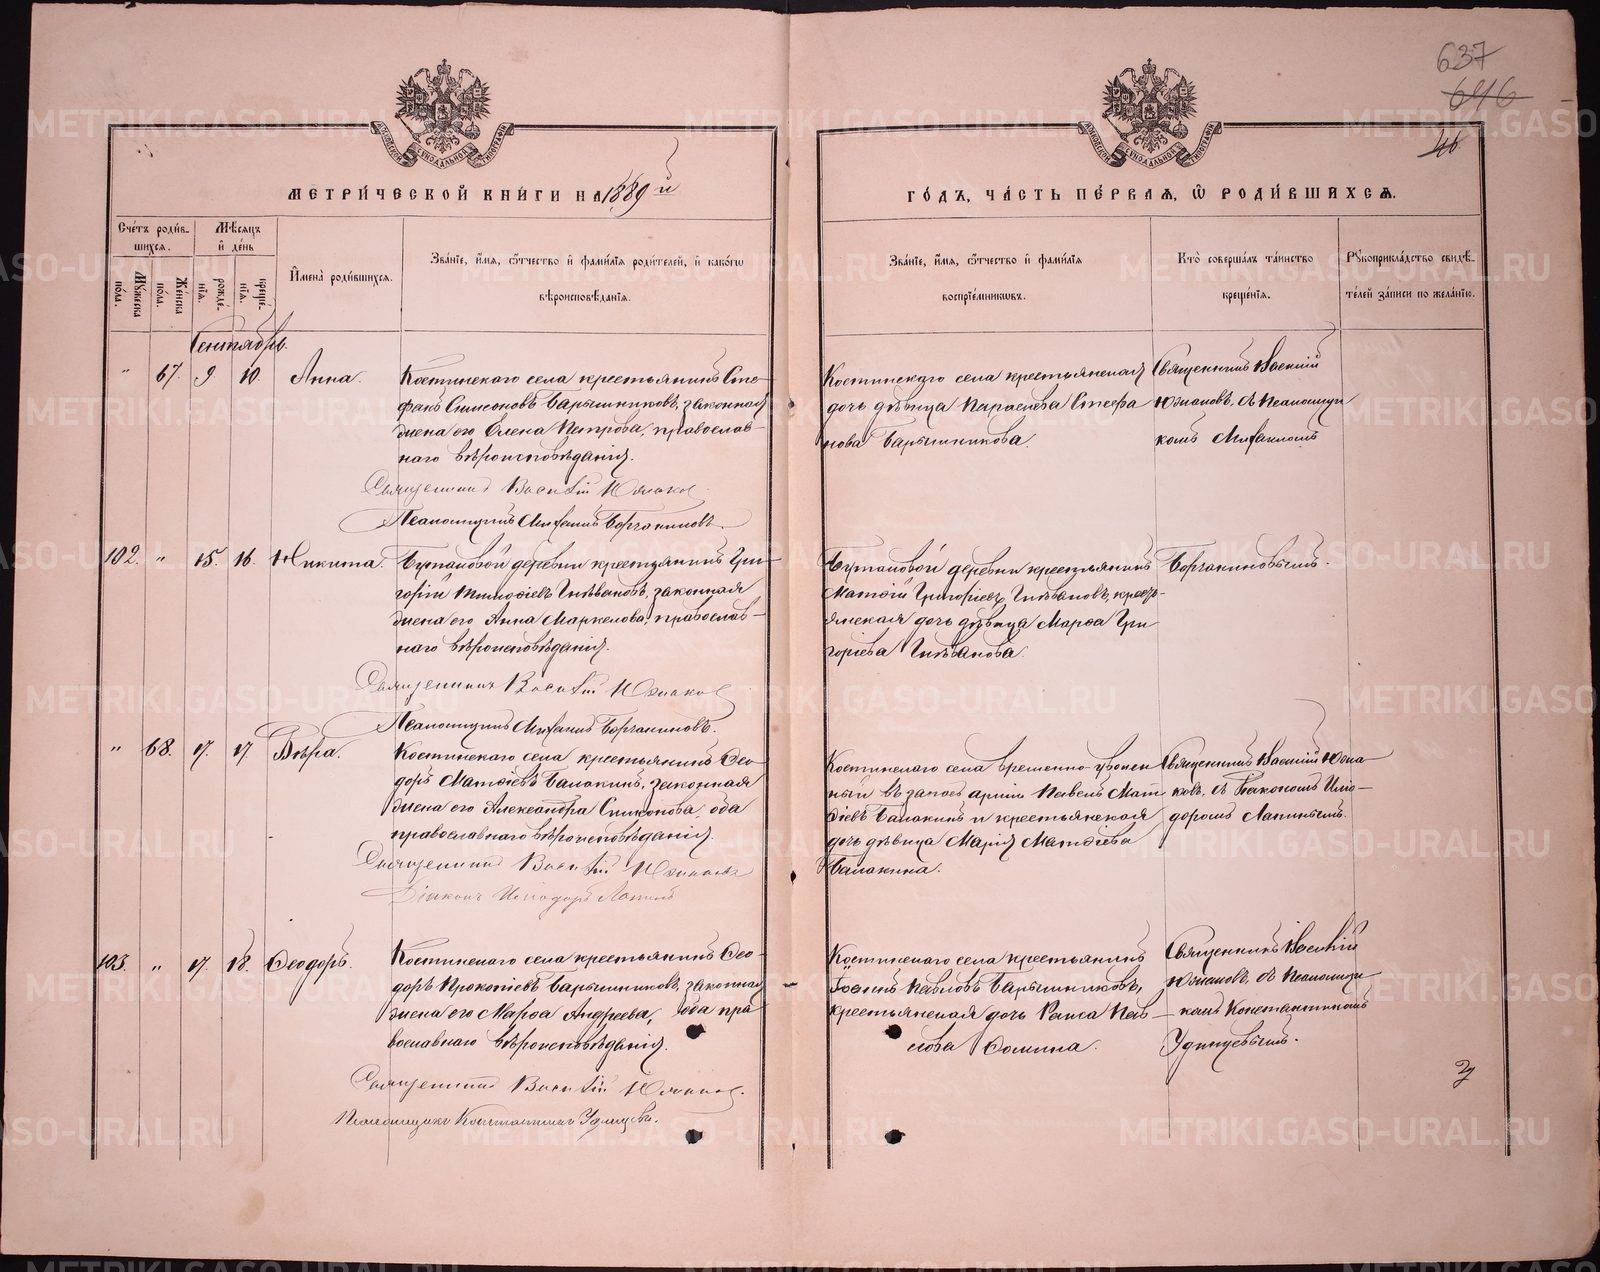 637
646
46
МЕТРИ́ЧЕСКОЙ КНИ́ГИ НА 1889 й
ГО́ДЪ, ЧА́СТЬ ПЕ́РВАѦ, Ѿ РОДИ́ВШИХСѦ.
Сче́тъ роди́в-
шихся.
Мѣ́сяцъ
и де́нь
Мꙋжеска
по́ла.
Же́нска
по́ла.
рожде́-
нїя.
креще́-
нїя.
Имена̀ роди́вшихся.
Зва́нїе, и́мя, ѻ́тчество и фами́лїя роди́телей, и како́гѡ
вѣроисповѣ́данїя.
Зва́нїе, и́мя, ѻ́тчество и фами́лїя
воспрїе́мникѡвъ.
Кто̀ соверша́лъ та́инство
креще́нїя.
Рꙋкоприкла́дство свидѣ́-
телей за́писи по жела́нїю.
Сентябрь.
" 67. 9 10. Анна.
Костинскаго села крестьянинъ Сте-
фанъ Симеоновъ Барышниковъ, законная
жена его Елена Петрова, православ-
наго вѣроисповѣданія.
Священникъ Василій Южаковъ
Псаломщикъ Михаилъ Борчаниновъ.
Костинскаго села крестьянская
дочь дѣвица Параскева Стефа
нова Барышникова.
Священникъ Василій
Южаковъ, съ Псаломщи
комъ Михаиломъ
102. " 15. 16. Никита.
деревни крестьянинъ Гри-
горій Тимофіевъ Гилевановъ, законная
жена его Анна Маркелова, православ-
наго вѣроисповѣданія.
Священникъ Василій Южаковъ
Псаломщикъ Михаилъ Борчаниновъ.
деревни крестьянинъ
Матфій Григоріевъ кресть-
янская дочь дѣвица Марѳа Гри
горіева
Борчаниновымъ.
" 68. 17. 17. Вѣра.
Костинскаго села крестьянинъ Ѳео-
доръ Матфіевъ Балакинъ, законная
жена его Александра Симконова, оба
православнаго вѣроисповѣданія.
Священникъ Василій Южаковъ
Діаконъ Исидоръ Лапинъ
Костинскаго села временно-уволен
ный въ запасъ арміи Павелъ Мат
фіевъ Балакинъ и крестьянская
дочь дѣвица Марія Матфіева
Балакина.
Священникъ Василій Южа
ковъ, съ Діакономъ Иси-
доромъ Лапинымъ.
103. " 17. 18. Ѳеодоръ.
Костинскаго села крестьянинъ Ѳео-
доръ Прокопіевъ Барышниковъ, законная
жена его Марѳа Андреева, оба пра
вославнаго вѣроисповѣданія.
Священникъ Василій Южаковъ.
Псаломщикъ Константинъ Удинцевъ.
Костинскаго села крестьянинъ
Іоаннъ Павловъ Барышниковъ,
крестьянская дочь Раиса Пав-
лова Ѳомина.
Священникъ Василій
Южаковъ, съ Псаломщи
комъ Константиномъ
Удинцевымъ.
METRIKI.GASO-URAL.RU